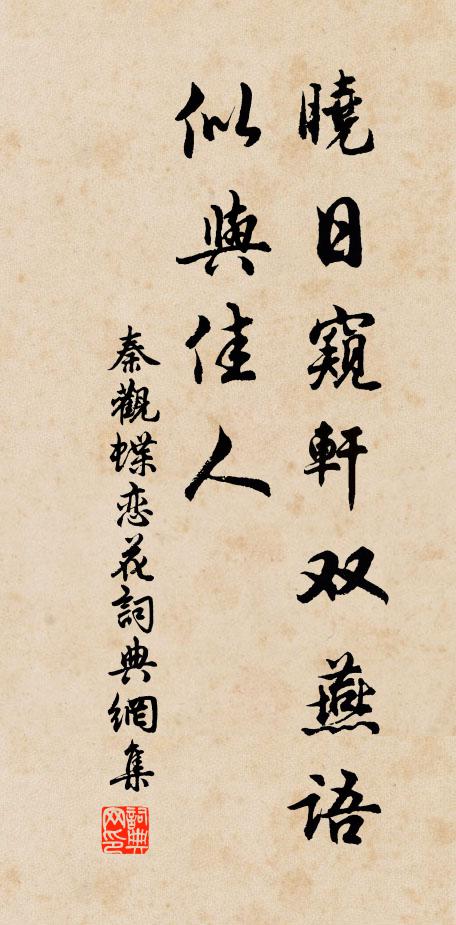 曉日窺軒双燕語
似與佳人
秦觀蝶恋花詞典網集
詞典網印